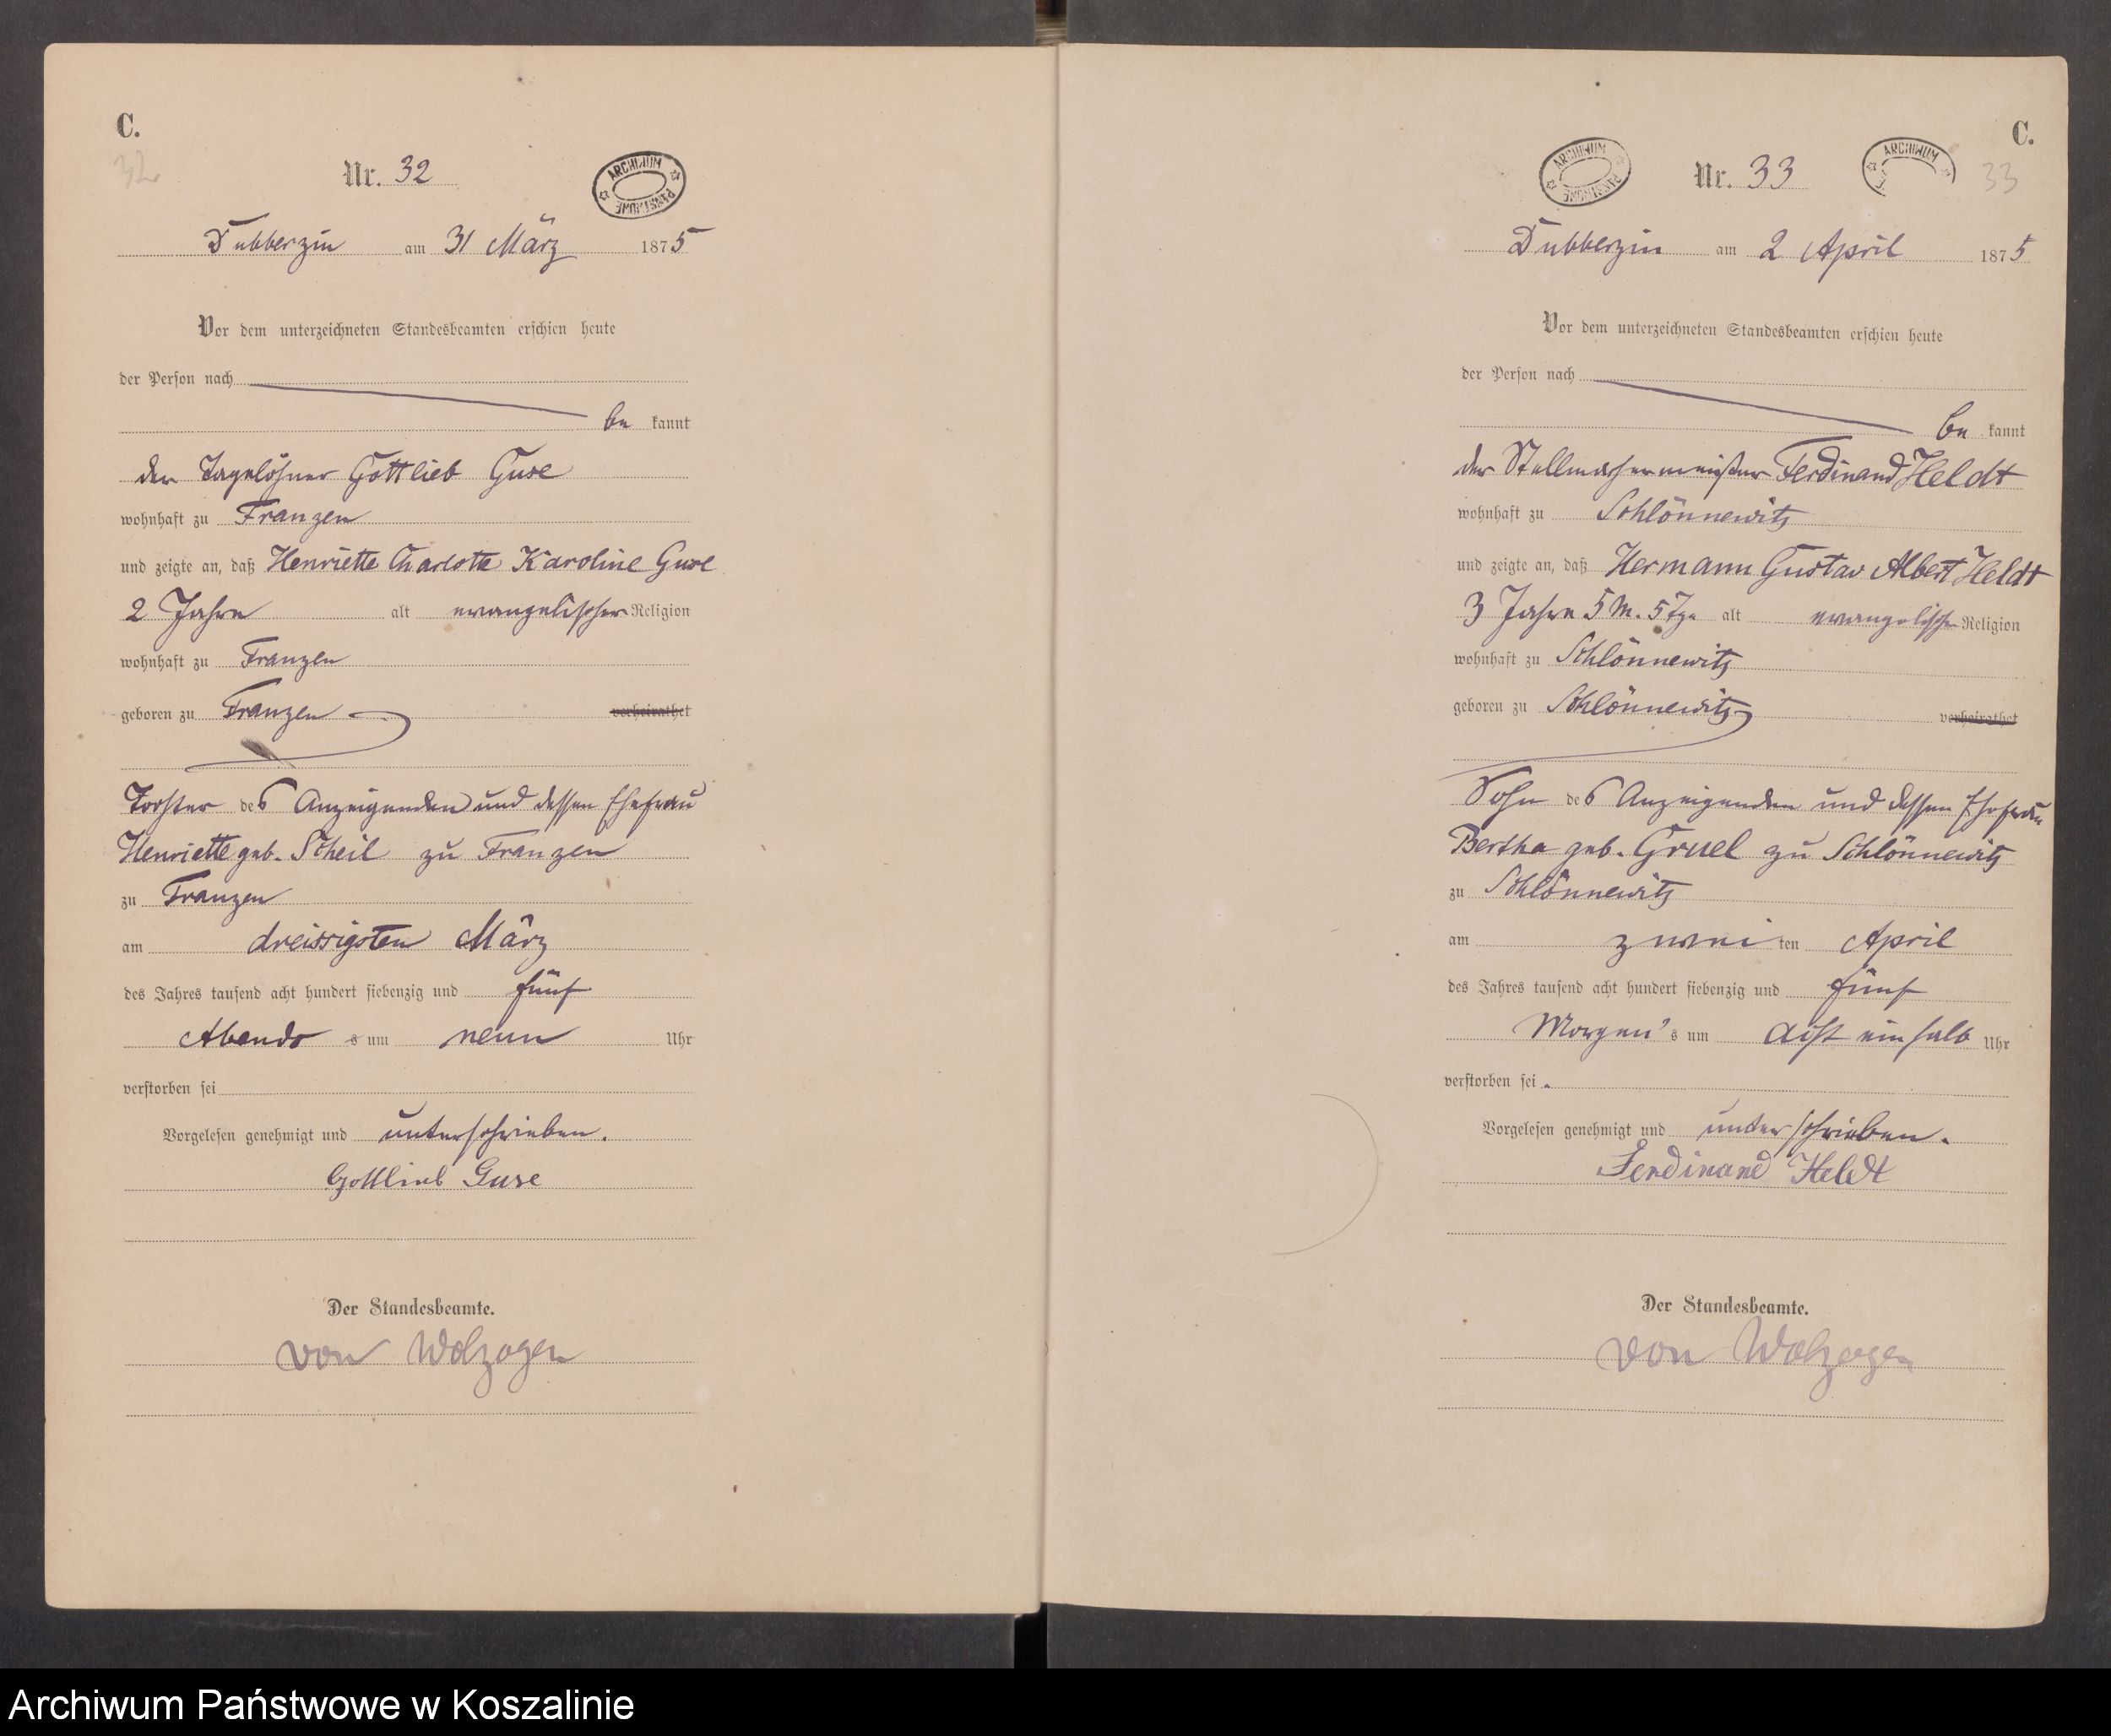 C.
32
Nr. 32
ARCHIWUM PAŃSTWOWE
Dubberzin am 31 März 1875
Vor dem unterzeichneten Standesbeamten erschien heute
der Person nach
be kannt
der Tagelöhner Gottlieb Guse
wohnhaft zu Franzen
und zeigte an, daß Henriette Charlotte Karoline Guse
2 Jahre alt evangelischer Religion
wohnhaft zu Franzen
geboren zu Franzen verheirathet
Tochter des Anzeigenden und dessen Ehefrau
Henriette geb. Scheil zu Franzen
zu Franzen
am dreissigsten März
des Jahres tausend acht hundert siebenzig und fünf
Abends s um neun Uhr
verstorben sei
Vorgelesen genehmigt und unterschrieben.
Gottlieb Guse
Der Standesbeamte.
von Wolzogen
C.
33
Nr. 33
ARCHIWUM PAŃSTWOWE
ARCHIWUM
Dubberzin am 2 April 1875
Vor dem unterzeichneten Standesbeamten erschien heute
der Person nach
be kannt
der Stellmachermeister Ferdinand Heldt
wohnhaft zu Schlönnewitz
und zeigte an, daß Hermann Gustav Albert Heldt
3 Jahre 5 M. 5 Tge alt evangelischer Religion
wohnhaft zu Schlönnewitz
geboren zu Schlönnewitz verheirathet
Sohn des Anzeigenden und dessen Ehefrau
Bertha geb. Gruel zu Schlönnewitz
zu Schlönnewitz
am zwei ten April
des Jahres tausend acht hundert siebenzig und fünf
Morgen's um acht einhalb Uhr
verstorben sei.
Vorgelesen genehmigt und unterschrieben.
Ferdinand Heldt
Der Standesbeamte.
von Wolzogen
Archiwum Państwowe w Koszalinie